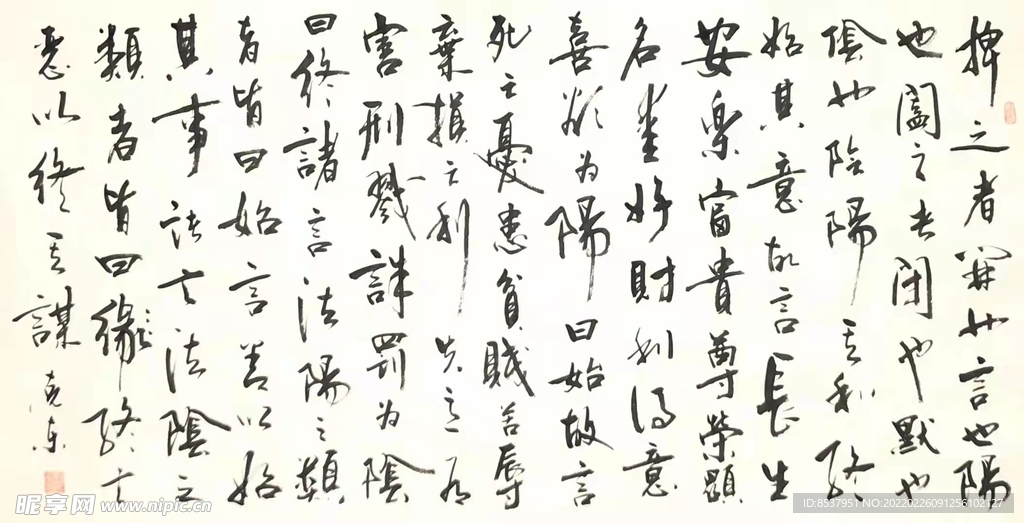 捭之者開也言也陽
也闔之者閉也默也
陰也陰陽其和終
始其意故言長生
安樂富貴尊榮顯
名愛好財利得意
喜欲为陽曰始故言
死亡憂患貧賤苦辱
棄損亡利失意有
害刑戮誅罰为陰
曰終諸言法陽之類
者皆曰始言善以始
其事諸言法陰之
類者皆曰緣終言
惡以終其謀 克东
昵享网 www.nipic.cn
ID:8537951 NO:20220226091256102127